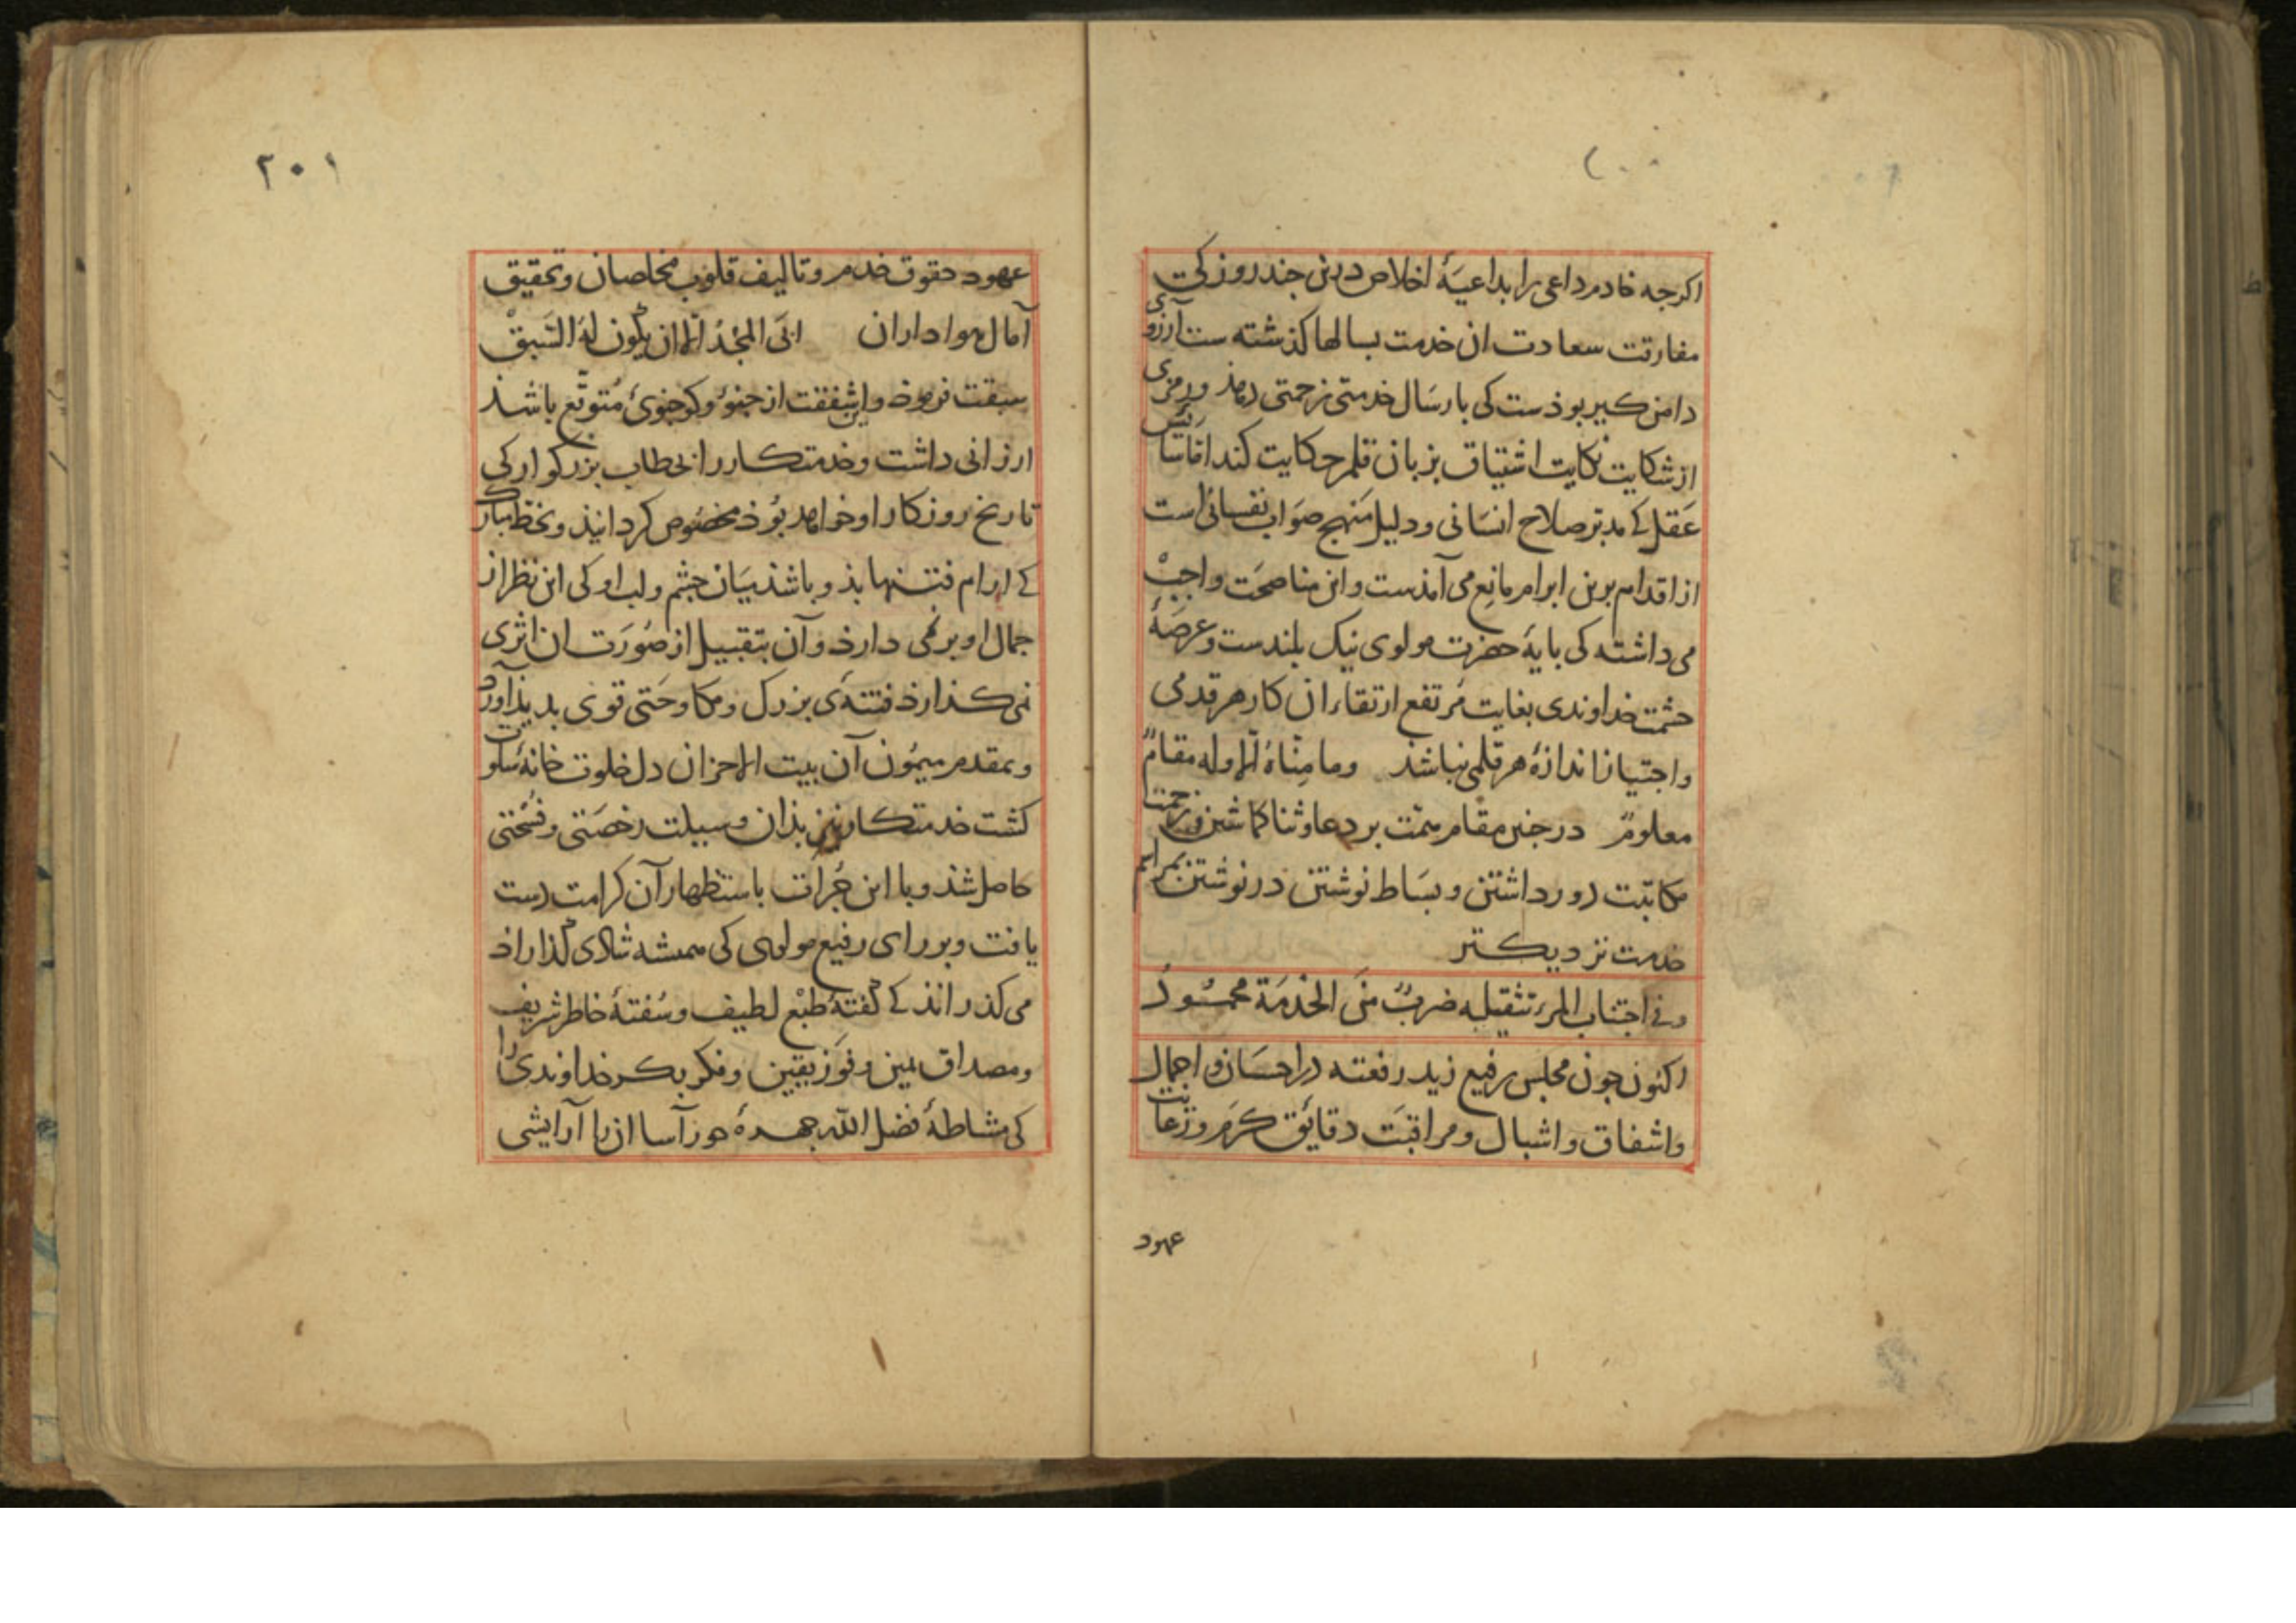 ۲۰۰
اکرجه خادم داعی را بداعیهٔ اخلاص درین جند روز کی
مفارقت سعادت ان خدمت بسالها کذشته ست آرزوی
دامن کیر بوذست کی بارسال خدمتی زحمتی دهذ و رمزی
از شکایت نکایت اشتیاق بزبان قلم حکایت کند امّا سایس
عقل کے مدبّر صلاح انسانی و دلیل منهج صواب نفسانی است
از اقدام برین ابرام مانع می آمذست و این مناصحت واجب
می داشته کی بایهٔ حضرت مولوی نیک بلندست و عرصهٔ
حشمت خداوندی بغایت مرتفع ارتقاء ان کار هر قدمی
و اجتیاز ان اندازهٔ هر قلمی نباشذ وما منّا الّا وله مقامٌ
معلومٌ در جنین مقام همّت بر دعا و ثنا کماشتن و زحمت
مکاتبت دور داشتن و بساط نوشتن در نوشتن بمراسم
خدمت نزدیکتر
وفی اجتناب المرء تثقیله ضربٌ من الخدمة محمود
اکنون جون مجلس رفیع زید رفعته در احسان و اجمال
و اشفاق و اشبال و مراقبت دقایق کرم و رعایت
عهود
۲۰۱
عهود حقوق خدم و تالیف قلوب مخلصان و تحقیق
آمال هواداران ابی المجد الّا ان یکون له السّبق
سبقت فرموذ و این شفقت از جنو و کو جنوی متوقّع باشذ
ارزانی داشت و خدمتکار را بخطاب بزرکوار کی
تاریخ روزکار او خواهد بوذ مخصوص کردانیذ و بخط مبارک
کے ارام فتنها بذو باشذ میان جشم و لب او کی این نظر از
جمال او بر نمی دارذ و آن بتقبیل از صورت ان اثری
نمی کذارذ فتنهٔی بزرک و مکاوحتی قوی بدیذ آورد
و بمقدم میمون آن بیت الاحزان دل خلوت خانهٔ سلوت
کشت خدمتکار نیز بذان وسیلت رخصتی و فسحتی
حاصل شذ و با این جرات باستظهار آن کرامت دست
یافت و بر رای رفیع مولوی کی همیشه شاذی کذاراذ
می کذرانذ کے کفتهٔ طبع لطیف و سفتهٔ خاطر شریف
و مصداق یمین و فوز یقین و فکر بکر خداوندی را
کی مشاطهٔ فضل الله جهرهٔ حورآسا ان را آرایشی